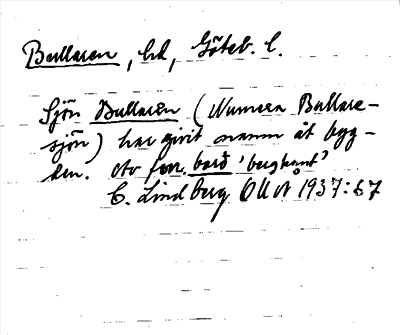 Bullaren, hd, Göteb. l.
Sjön Bullaren (Numera Bullare-
sjön) har givit namn åt byg-
den. Av fsv. bard 'bergkant'
C. Lindberg OUÅ 1937:67